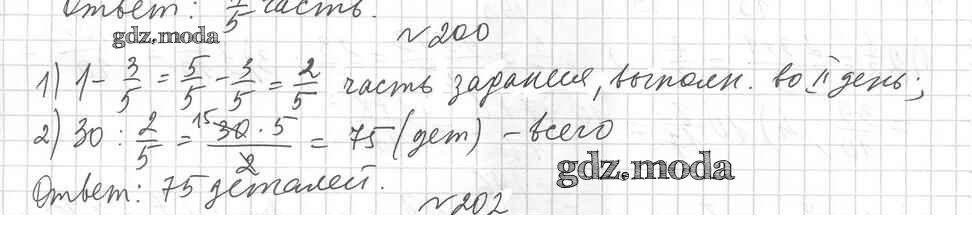 Ответ: 1/5 часть.
gdz.moda
№200
1) 1 - 3/5 = 5/5 - 3/5 = 2/5 часть задания, выполн. во II день;
2) 30 : 2/5 = 15 30 · 5 / 2 = 75 (дет) - всего
gdz.moda
Ответ: 75 деталей.
№202